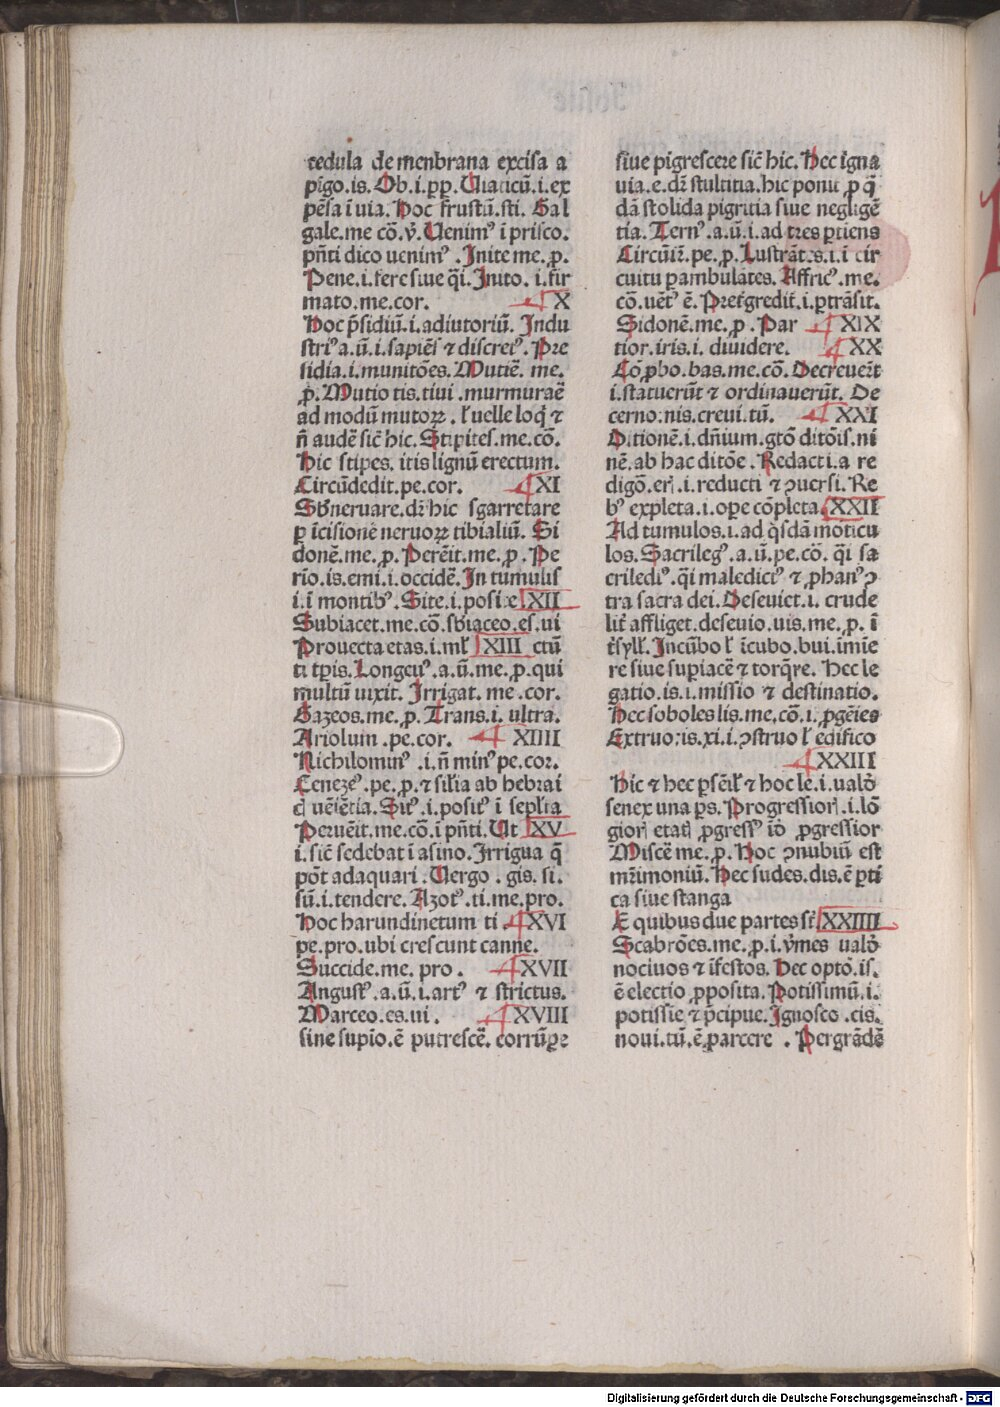 cedula de menbrana excisa a
pīgo.is. Ob.i.ꝓp. Uiaticū.i.ex
pēsa ī uia. Hoc frustū.sti. Gal
gale.me cō.ꝟ. Uenimꝰ ī prisco.
pn̄ti dico uenimꝰ. Jnite me.ꝓ.
Pene.i.fere siue q̄i. Jnito.i.fir
mato.me.cor. X
Hoc p̄sidiū.i.adiutoriū. Jndu
striꝰ a.ū.i.sapiēs ⁊ discretꝰ. Pre
sidia.i.munitōes. Mutiē. me.
ꝓ. Mutio tis.tiui.murmuraē
ad modū mutoꝝ. ł uelle loq̄ ⁊
n̄ audē sic̄ hic. Stipites.me.cō.
Hic stipes.itis lignū erectum.
Circūdedit.pe.cor. XI
Sb̄neruare.dr̄ hic sgarretare
ꝑ īcisionē neruoꝝ tibialiū. Si
donē.me.ꝓ. Perēit.me.ꝓ. Pe
rio.is.emi.i.occidē. Jn tumulis
i.ī montibꝰ. Site.i.posite XII
Subiacet.me.cō.sb̄iaceo.es.ui
Prouecta etas.i.ml̄ XIII ctū
ti tp̄is. Longeuꝰ.a.ū.me.ꝓ.qui
multū uixit. Jrrigat.me.cor.
Gazeos.me.ꝓ. Trans.i.ultra.
Ariolum.pe.cor. XIIII
Nichilominꝰ.i.n̄ minꝰ pe.cor.
Cenezeꝰ.pe.ꝓ.⁊ silia ab hebrai
q̄ uēiētia. Sitꝰ.i.positꝰ ī septr̄ta
Peruēit.me.cō.ī pn̄ti. Ut XV
i.sic̄ sedebat ī asino. Jrrigua q̄
pōt adaquari. Uergo.gis.si.
sū.i.tendere. Azotꝰ.ti.me.pro.
Hoc harundinetum ti XVI
pe.pro.ubi crescunt canne.
Succide.me.pro. XVII
Angustꝰ.a.ū.i.artꝰ ⁊ strictus.
Marceo.es.ui. XVIII
sine supio.ē putrescē.corrūpe
siue pigrescere sic̄ hic. Hec igna
uia.e.dr̄ stultitia.hic ponit̄ ꝓ q̄
dā stolida pigritia siue negligē
tia. Ternꝰ.a.ū.i.ad tres ꝑtiens
Circūiī.pe.ꝓ. Lustrātes.i.ī cir
cuitu ꝑambulātes. Affricꝰ.me.
cō.uētꝰ ē. Pretgredit̄.i.ꝑtrāsit.
Sidonē.me.ꝓ. Par XIX
tior.iris.i.diuidere. XX
Cō ꝓbo.bas.me.cō. Decreuer̄t
i.statuerūt ⁊ ordinauerūt. De
cerno:nis.creui.tū. XXI
Ditionē.i.dn̄ium.gtō ditōis.ni
nē.ab hac ditōe. Redacti.a re
digō.er̄.i.reducti ⁊ ꝯuersi. Re
bꝰ expleta.i.oꝑe cōpleta. XXII
Ad tumulos.i.ad q̄sdā mōticu
los. Sacrilegꝰ.a.ū.pe.cō. q̄i sa
crilediꝰ.q̄i maledictꝰ ⁊ ꝓhanꝰ ꝯ
tra sacra dei. Deseuiet.i. crude
lit̄ affliget.deseuio.uis.me.ꝓ.i
t̄syll̄. Jncūbo ł īcubo.bui.imīe
re siue suꝑiacē ⁊ torq̄re. Hec le
gatio.is.i.missio ⁊ destinatio.
Hec soboles lis.me.cō.i.ꝓgēies
Extruo:is.xi.i.ꝯstruo ł edifico
XXIII
Hic ⁊ hec p̄sēs̄ ⁊ hoc le.i.ualō
senex una ps. Progressiori.i.lō
giori etati ꝓgressꝰ iō ꝓgressior
Miscē me.ꝓ. Hoc ꝯnubiū est
mr̄imoniū. Hec sudes.dis.ē ꝑti
ca siue stanga
E quibus due partes sī XXIIII
Scabrōes.me.ꝓ.i.ꝟmes ualō
nociuos ⁊ īfestos. Hec optō.is.
ē electio ꝓposita. Potissimū.i.
potissie ⁊ p̄cipue. Jgnosco.cis.
noui.tū.ē.parcere. Pergrādē